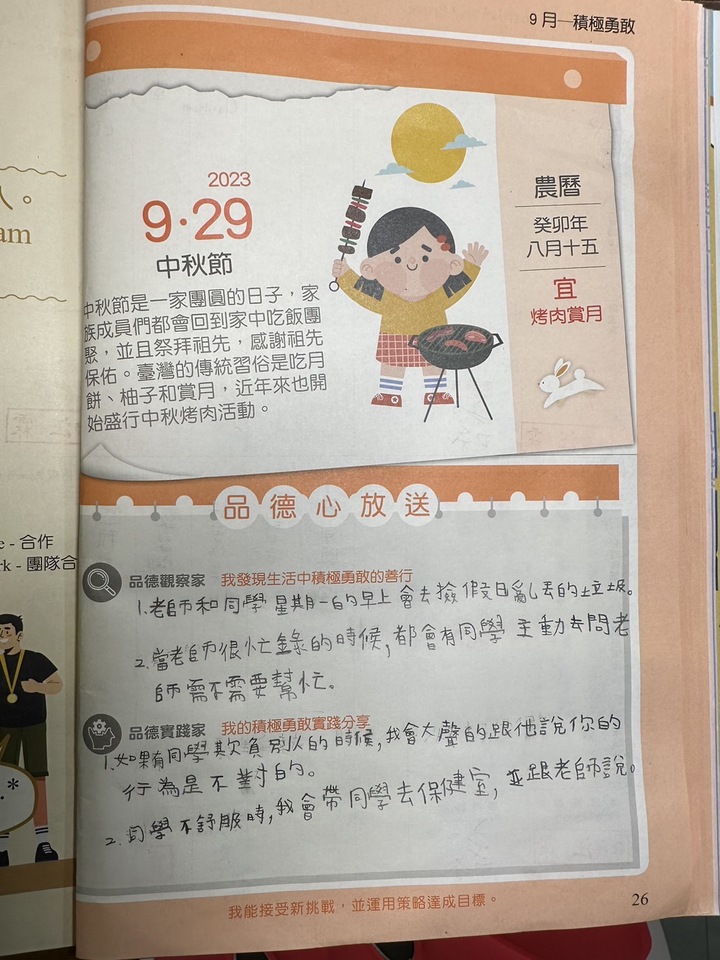 9月—積極勇敢
人。
am
2023
9·29
中秋節
中秋節是一家團圓的日子，家
族成員們都會回到家中吃飯團
聚，並且祭拜祖先，感謝祖先
保佑。臺灣的傳統習俗是吃月
餅、柚子和賞月，近年來也開
始盛行中秋烤肉活動。
農曆
癸卯年
八月十五
宜
烤肉賞月
品德心放送
e - 合作
rk - 團隊合
品德觀察家 我發現生活中積極勇敢的善行
1.老師和同學星期一的早上會去撿假日亂丟的垃圾。
2.當老師很忙錄的時候,都會有同學主動去問老
師需不需要幫忙。
品德實踐家 我的積極勇敢實踐分享
1.如果有同學欺負別人的時候,我會大聲的跟他說你的
行為是不對的。
2.同學不舒服時,我會帶同學去保健室,並跟老師說。
我能接受新挑戰，並運用策略達成目標。
26